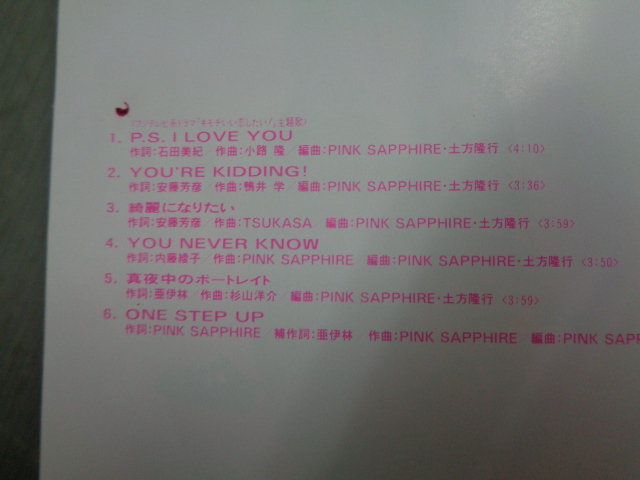 〈フジテレビ系ドラマ「キモチいい恋したい!」主題歌〉
1. P.S. I LOVE YOU
作詞:石田美紀／作曲:小路 隆／編曲:PINK SAPPHIRE・土方隆行〈4:10〉
2. YOU'RE KIDDING!
作詞:安藤芳彦／作曲:鴨井 学／編曲:PINK SAPPHIRE・土方隆行〈3:36〉
3. 綺麗になりたい
作詞:安藤芳彦／作曲:TSUKASA／編曲:PINK SAPPHIRE・土方隆行〈3:59〉
4. YOU NEVER KNOW
作詞:内藤綾子／作曲:PINK SAPPHIRE／編曲:PINK SAPPHIRE・土方隆行〈3:50〉
5. 真夜中のポートレイト
作詞:亜伊林／作曲:杉山洋介／編曲:PINK SAPPHIRE・土方隆行〈3:59〉
6. ONE STEP UP
作詞:PINK SAPPHIRE／補作詞:亜伊林／作曲:PINK SAPPHIRE／編曲:PINK SAPP